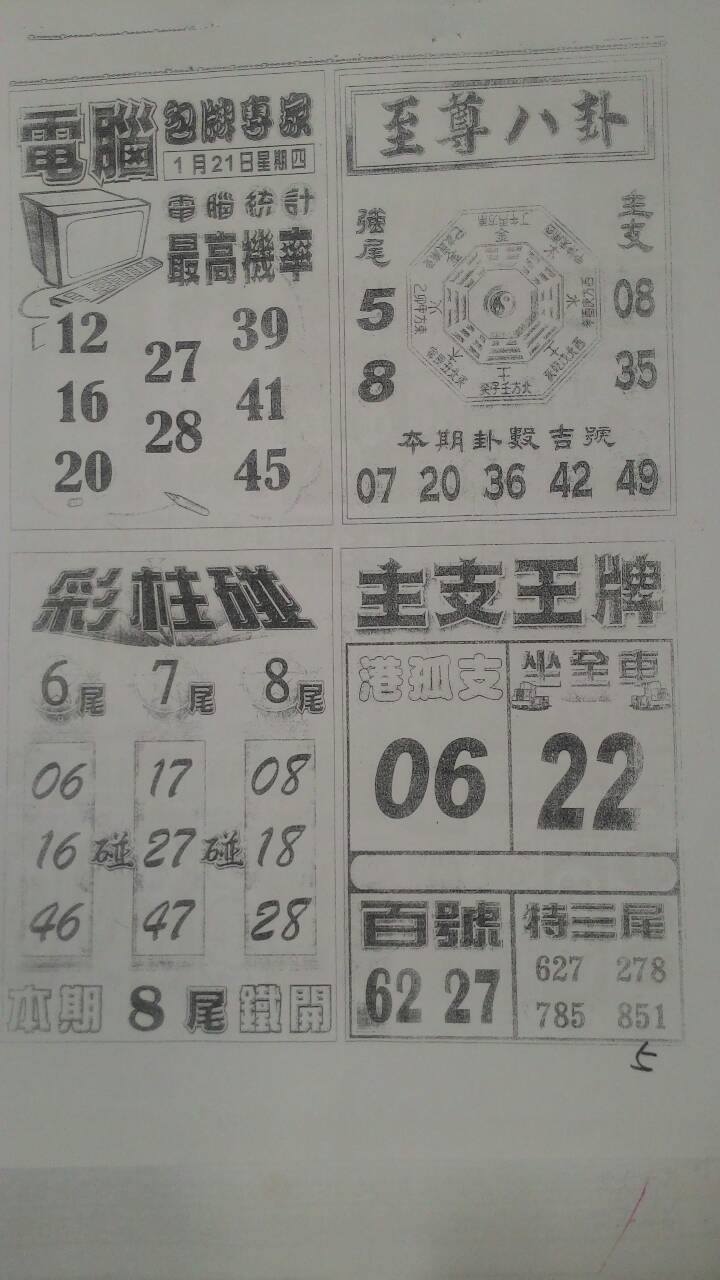 電腦 包牌專家
1月21日星期四
電腦統計
最高機率
12 27 39
16 28 41
20 45
至尊八卦
強尾 主支
5 08
8 35
本期卦數吉號
07 20 36 42 49
彩柱碰
6尾 7尾 8尾
06 17 08
16 碰 27 碰 18
46 47 28
本期 8 尾鐵開
主支王牌
港孤支 坐全車
06 22
百號 特三尾
62 27
627 278
785 851
5